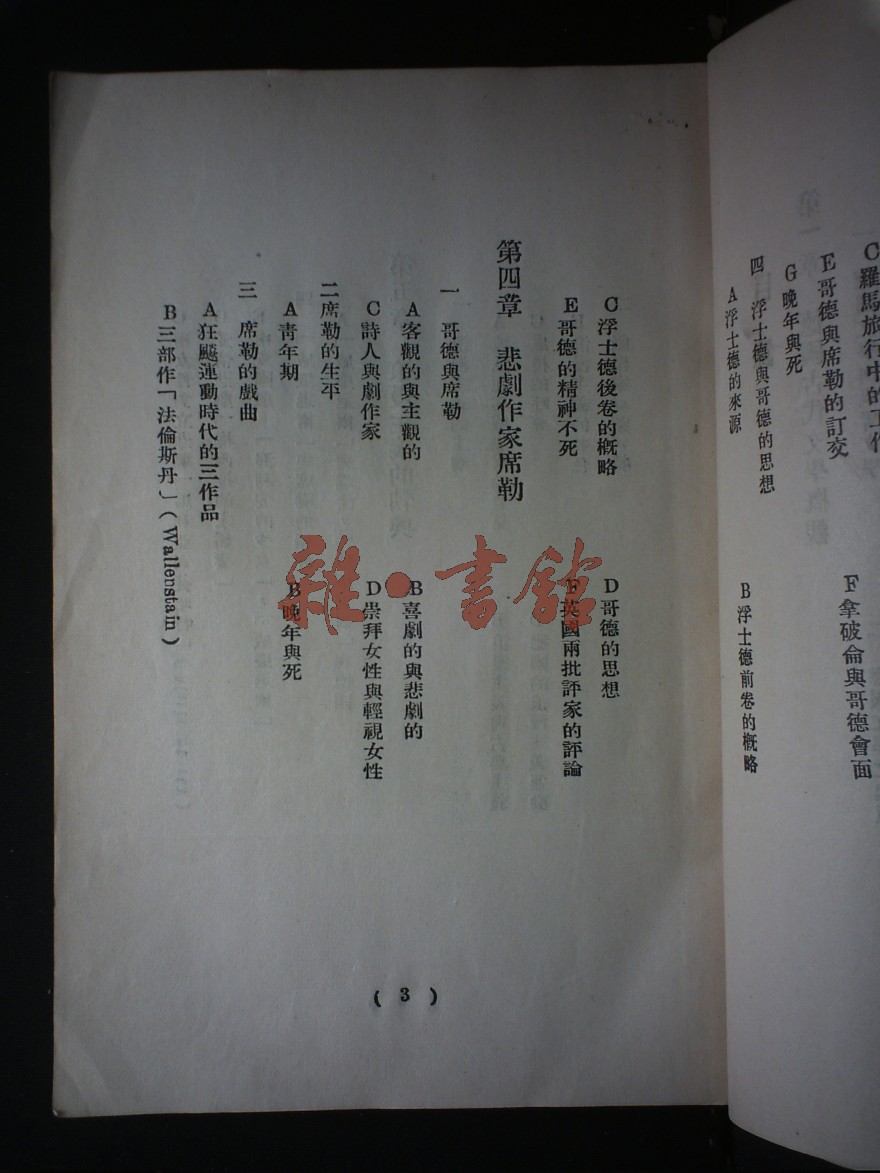 C羅馬旅行中的工作
E哥德與席勒的訂交
F拿破侖與哥德會面
G晚年與死
四 浮士德與哥德的思想
A浮士德的來源
B浮士德前卷的概略
C浮士德後卷的概略
D哥德的思想
E哥德的精神不死
F英國兩批評家的評論
第四章 悲劇作家席勒
一 哥德與席勒
A客觀的與主觀的
B喜劇的與悲劇的
C詩人與劇作家
D崇拜女性與輕視女性
二席勒的生平
A青年期
B晚年與死
三 席勒的戲曲
A狂飈運動時代的三作品
B三部作「法倫斯丹」(Wallenstain)
(3)
雜·書館